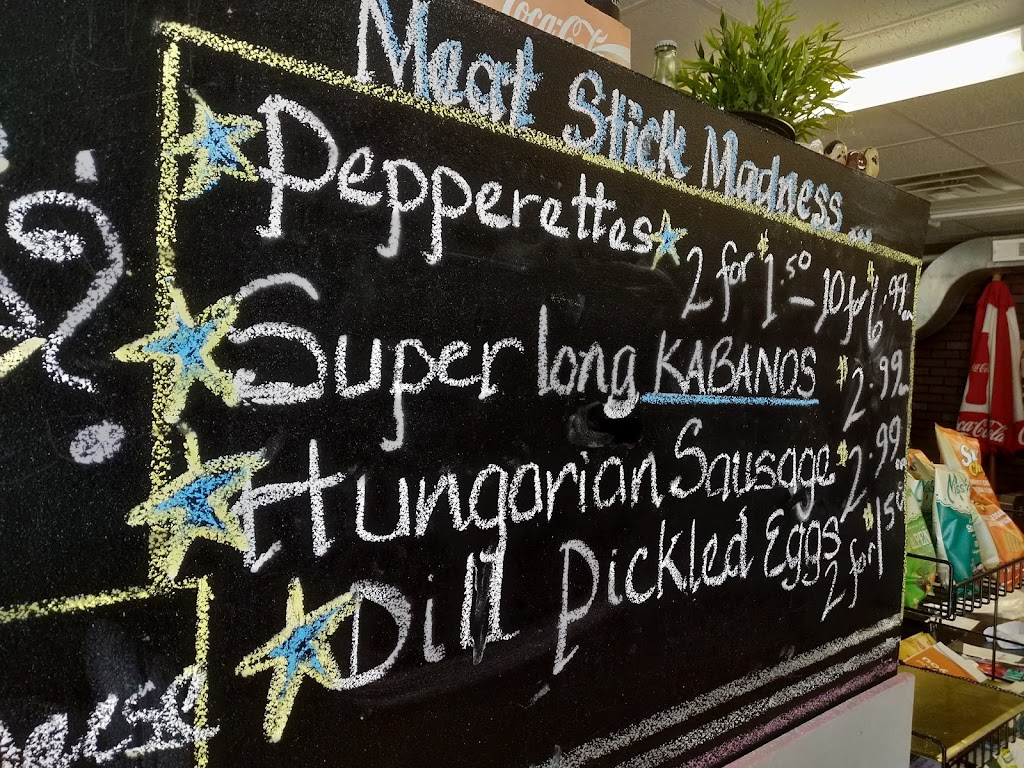 Coca-Cola
Meat Stick Madness...
Pepperettes 2 for $1.50 10 for $6.99
Super long KABANOS $2.99
Hungarian Sausage $2.99
Dill Pickled Eggs 2 for $1.50
Coca-Cola